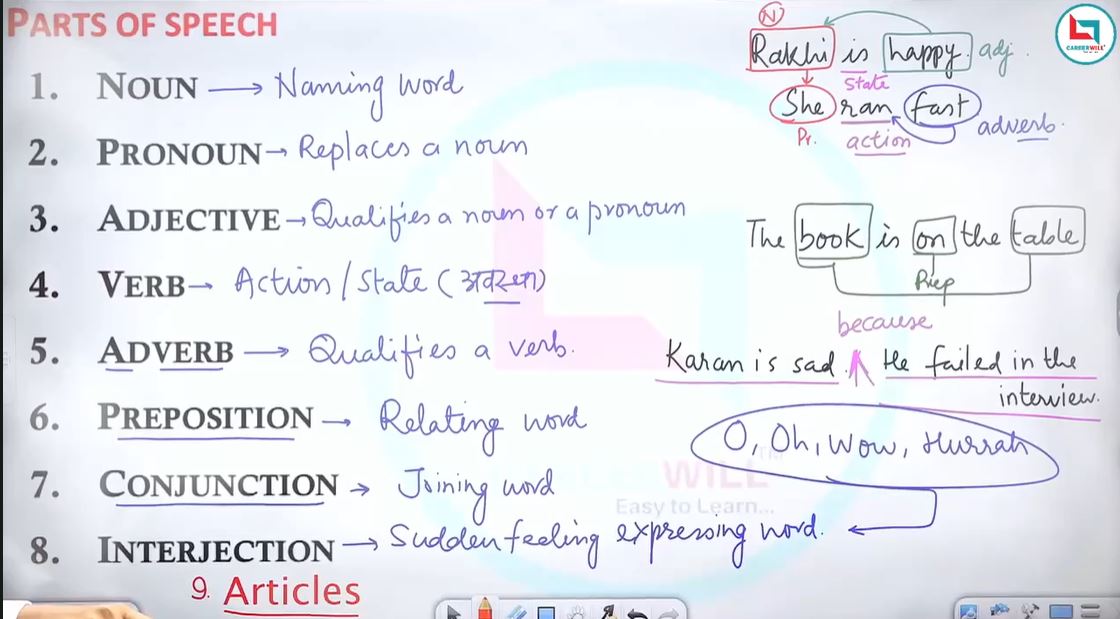 PARTS OF SPEECH
1. NOUN → Naming word
2. PRONOUN → Replaces a noun
3. ADJECTIVE → Qualifies a noun or a pronoun
4. VERB → Action / State (अवस्था)
5. ADVERB → Qualifies a verb.
6. PREPOSITION → Relating word
7. CONJUNCTION → Joining word
8. INTERJECTION → Sudden feeling expressing word.
9. Articles
N
Rakhi is happy. adj.
State
She ran fast adverb.
Pr. action
The book is on the table
Prep
because
Karan is sad. He failed in the
interview.
O, Oh, Wow, Hurrah
WILL
Easy to Learn...
CAREERWILL